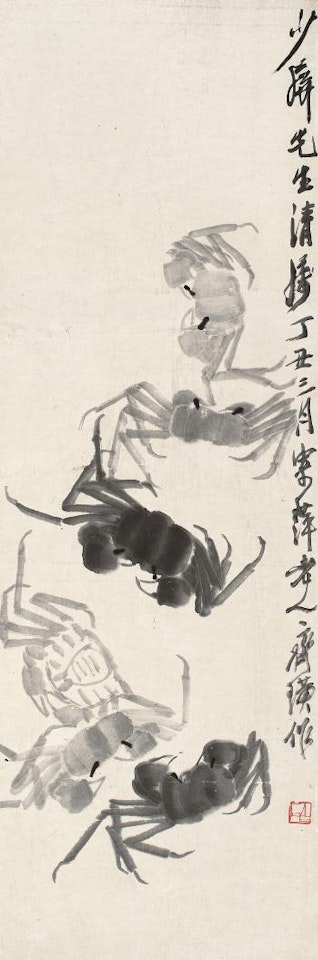 少苹先生清拂丁丑三月寄萍老人齐璜作